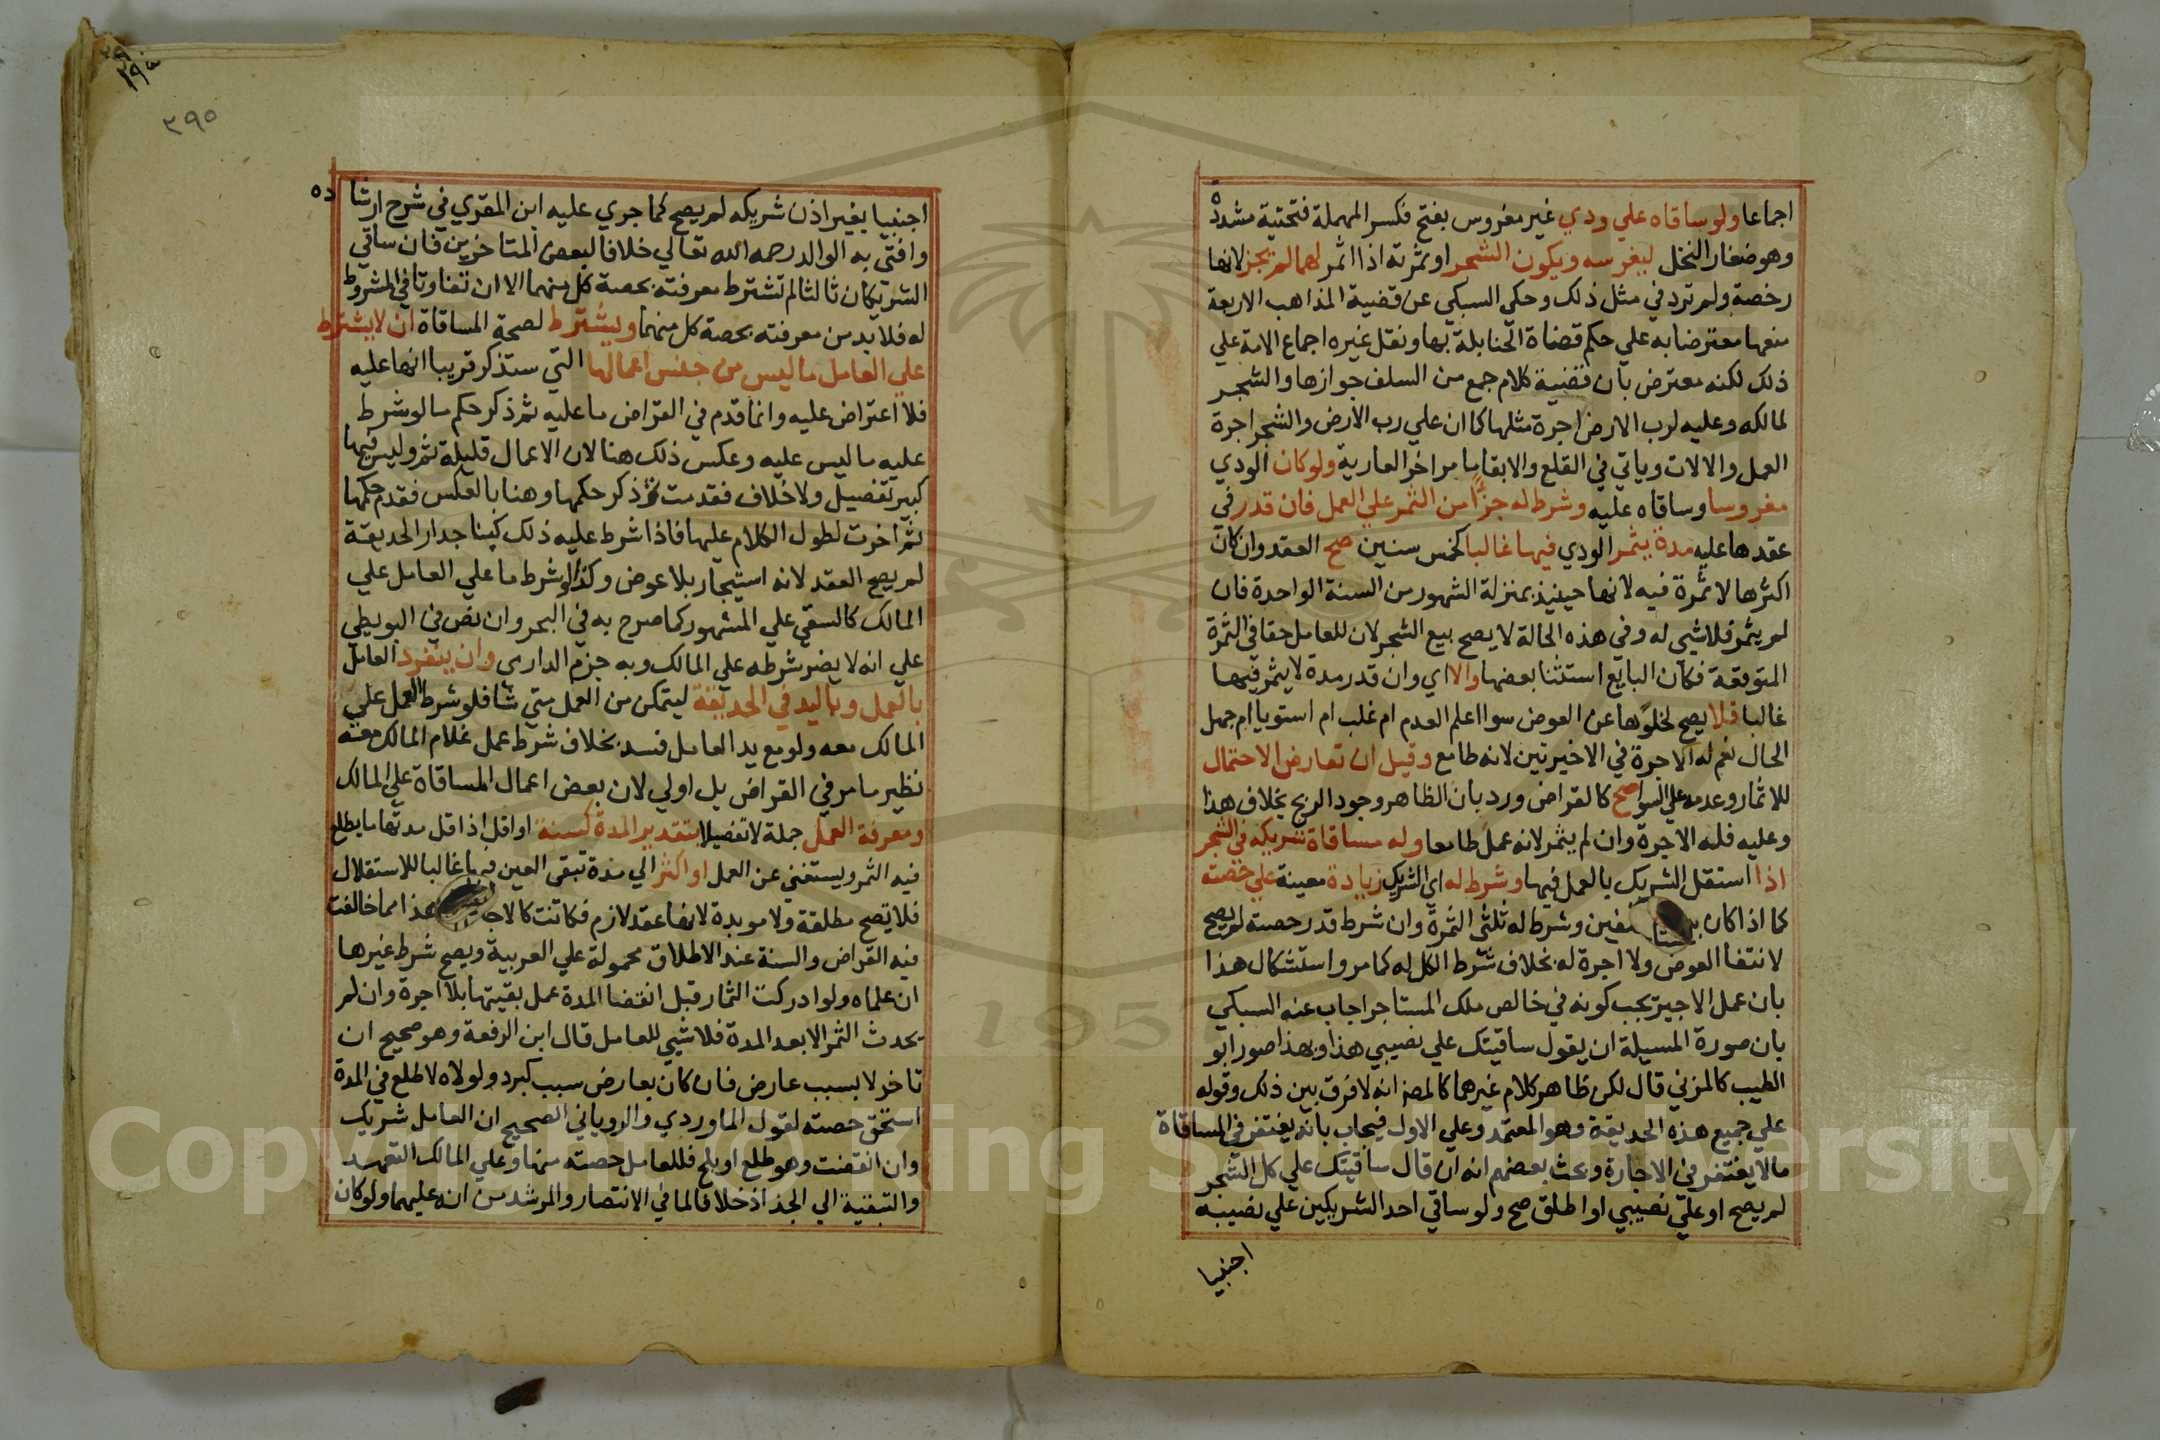 اجماعا ولو ساقاه علي ودي غير مغروس بفتح فكسر المهملة فتحتية مشددة
وهو صغار النخل ليغرسه ويكون الشجر او ثمرته اذا اثمر لهما لم يجز لانها
رخصة ولم ترد في مثل ذلك وحكي السبكي عن قضية المذاهب الاربعة
منعها معترضا به علي حكم قضاة الحنابلة بها ونقل غيره اجماع الامة علي
ذلك لكنه معترض بان قضية كلام جمع من السلف جوازها والشجر
لمالكه وعليه لرب الارض اجرة مثلها كما ان علي رب الارض والشجر اجرة
العمل والالات وياتي في القلع والابقا ما مر اخر العارية ولو كان الودي
مغروسا وساقاه عليه وشرط له جزأ من الثمر علي العمل فان قدر في
عقدها عليه مدة يثمر الودي فيها غالبا كخمس سنين صح العقد وان كان
اكثرها لا ثمرة فيه لانها حينيذ بمنزلة الشهور من السنة الواحدة فان
لم يثمر فلا شي له وفي هذه الحالة لا يصح بيع الشجر لان للعامل حقا في الثمرة
المتوقعة فكان البايع استثنا بعضها والا اي وان قدر مدة لا يثمر فيها
غالبا فلا يصح لخلوها عن العوض سوا اعلم العدم ام غلب ام استويا ام جهل
الحال نعم له الاجرة في الاخيرتين لانه طامع وقيل ان تعارض الاحتمال
للاثمار وعدمه علي السوا صح كالقراض ورد بان الظاهر وجود الربح بخلاف هذا
وعليه فله الاجرة وان لم يثمر لانه عمل طامعا وله مساقاة شريكه في الشجر
اذا استقل الشريك بالعمل فيها وشرط له اي الشريك زيادة معينة علي حصته
كما اذا كان نصفين وشرط له ثلثي الثمرة وان شرط قدر حصته لم يصح
لانتفا العوض ولا اجرة له بخلاف شرط الكل له كما مر واستشكال هذا
بان عمل الاجير يجب كونه في خالص ملك المستاجر اجاب عنه السبكي
بان صورة المسيلة ان يقول ساقيتك علي نصيبي هذا وبهذا صور ابو
الطيب كالمزني قال لكن ظاهر كلام غيرهما كالمص انه لا فرق بين ذلك وقوله
علي جميع هذه الحديقة وهو المعتمد وعلي الاول فيجاب بانه يغتفر في المساقاة
مالا يغتفر في الاجارة وبحث بعضهم انه ان قال ساقيتك علي كل الشجر
لم يصح او علي نصيبي او اطلق صح ولو ساقي احد الشريكين علي نصيبه
اجنبيا
٣٩٥
اجنبيا بغير اذن شريكه لم يصح كما جري عليه ابن المقري في شرح ارشاده
وافتي به الوالد رحمه الله تعالي خلافا لبعض المتاخرين فان ساقي
الشريكان ثالثا لم تشترط معرفته بحصة كل منهما الا ان تفاوتا في المشروط
له فلا بد من معرفته بحصة كل منهما ويشترط لصحة المساقاة ان لا يشترط
علي العامل ما ليس من جنس اعمالها التي ستذكر قريبا انها عليه
فلا اعتراض عليه وانما قدم في القراض ما عليه ثم ذكر حكم ما لو شرط
عليه ما ليس عليه وعكس ذلك هنا لان الاعمال قليلة ثم وليس فيها
كبير تفصيل ولا خلاف فقدمت ثم ذكر حكمها وهنا بالعكس فقدم حكمها
ثم اخرت لطول الكلام عليها فاذا شرط عليه ذلك كبنا جدار الحديقة
لم يصح العقد لانه استيجار بلا عوض وكذا لو شرط ما علي العامل علي
المالك كالسقي علي المشهور كما صرح به في البحر وان نص في البويطي
علي انه لا يضر شرطه علي المالك وبه جزم الدارمي وان ينفرد العامل
بالعمل وباليد في الحديقة ليتمكن من العمل متي شا فلو شرط العمل علي
المالك معه ولو مع يد العامل فسد بخلاف شرط عمل غلام المالك معه
نظير ما مر في القراض بل اولي لان بعض اعمال المساقاة علي المالك
ومعرفة العمل جملة لا تفصيلا بتقدير المدة كسنة او اقل اذ اقل مدتها ما يطلع
فيه الثمر ويستغني عن العمل او اكثر الي مدة تبقي العين فيها غالبا للاستقلال
فلا تصح مطلقة ولا موبدة لانها عقد لازم فكانت كالاجا وهذا مما خالفت
فيه القراض والسنة عند الاطلاق محمولة علي العربية ويصح شرط غيرها
ان علماه ولو ادركت الثمار قبل انقضا المدة عمل بقيتها بلا اجرة وان لم
يحدث الثمر الا بعد المدة فلا شي للعامل قال ابن الرفعة وهو صحيح ان
تاخر لا بسبب عارض فان كان بعارض سبب كبرد ولولاه لا طلع في المدة
استحق حصته لقول الماوردي والروياني الصحيح ان العامل شريك
وان انقضت وهو طلع او بلح فللعامل حصته منها وعلي المالك التعهد
والتبقية الي الجذاذ خلافا لما في الانتصار والمرشد من انه عليهما ولو كان
Copyright © King Saud University
195